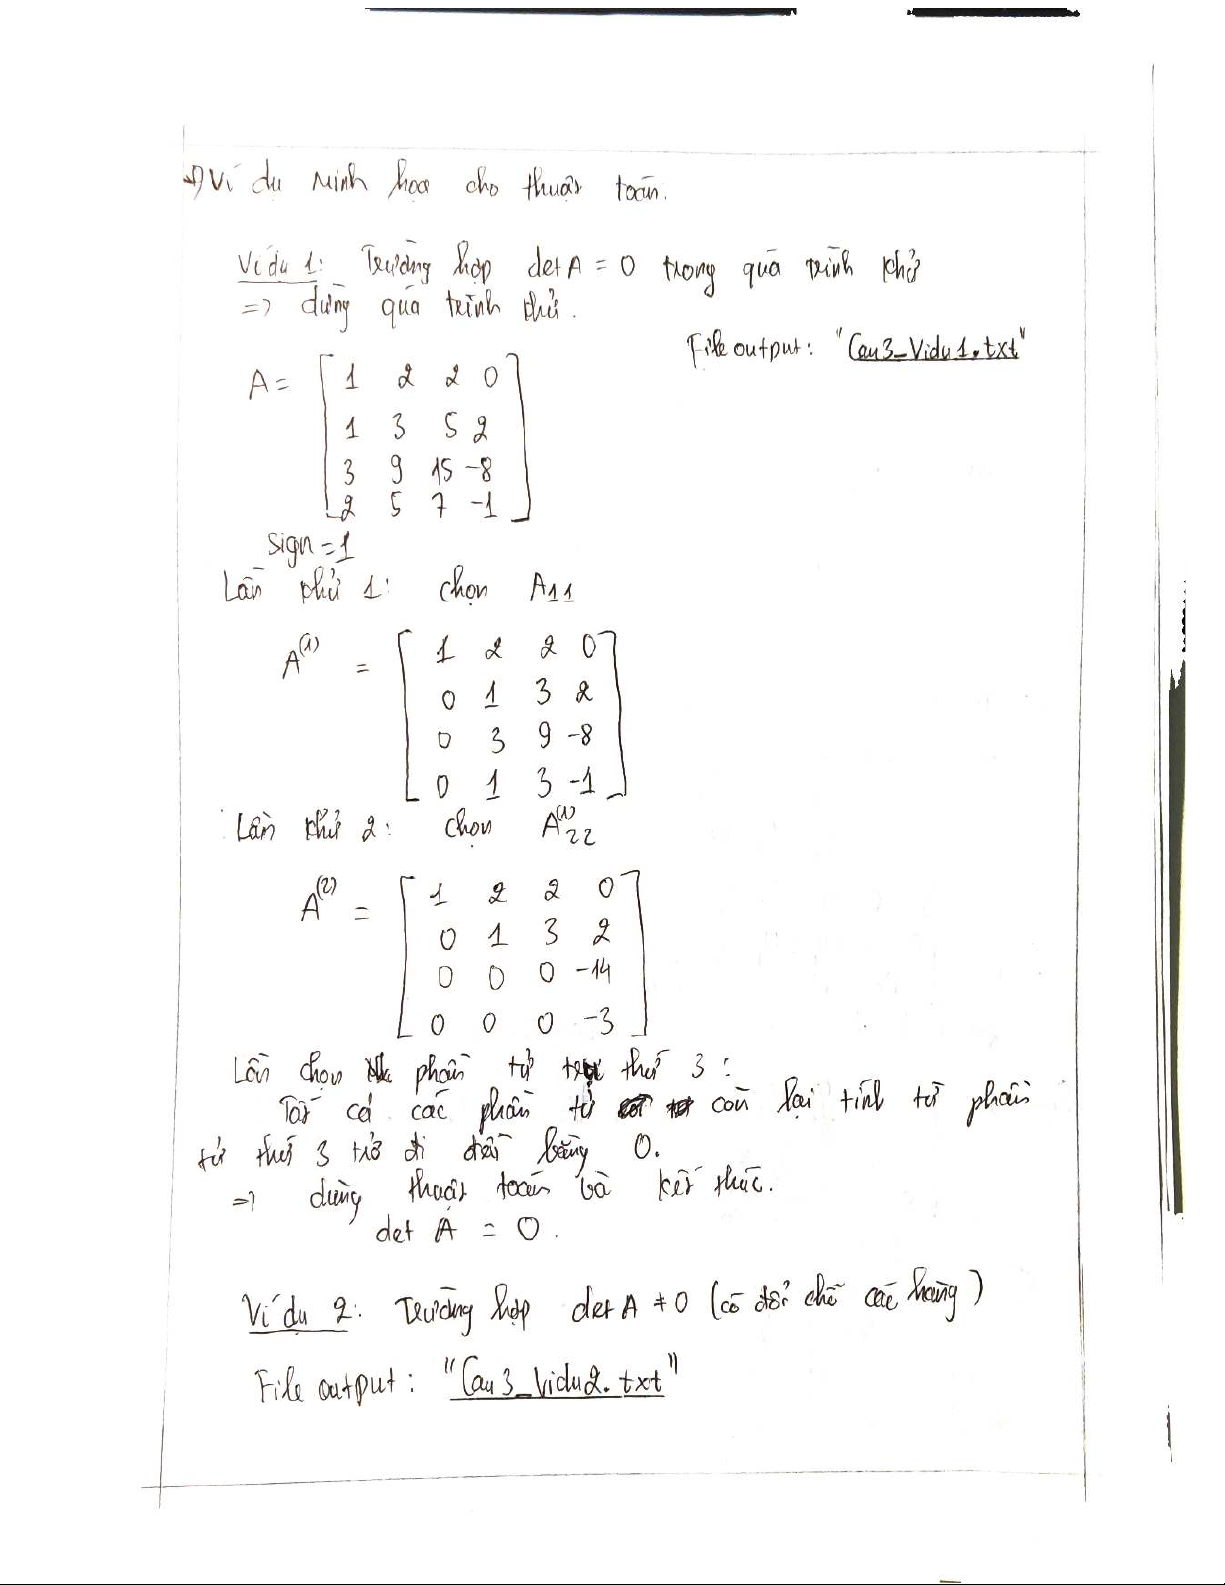 →) Ví dụ minh họa cho thuật toán.
Ví dụ 1: Trường hợp det A = 0 trong quá trình khử
=> dừng quá trình khử.
File output: "Cau3_Vidu1.txt"
A = [ 1 2 2 0
1 3 5 2
3 9 15 -8
2 5 7 -1 ]
sign = 1
Lần khử 1: chọn A11
A^(1) = [ 1 2 2 0
0 1 3 2
0 3 9 -8
0 1 3 -1 ]
Lần khử 2: chọn A^(1)22
A^(2) = [ 1 2 2 0
0 1 3 2
0 0 0 -14
0 0 0 -3 ]
Lần chọn phần tử trục thứ 3:
Tất cả các phần tử còn lại tính từ phần
tử thứ 3 trở đi đều bằng 0.
=> dừng thuật toán và kết thúc.
det A = 0.
Ví dụ 2: Trường hợp det A ≠ 0 (có đổi chỗ các hàng)
File output: "Cau3_Vidu2.txt"